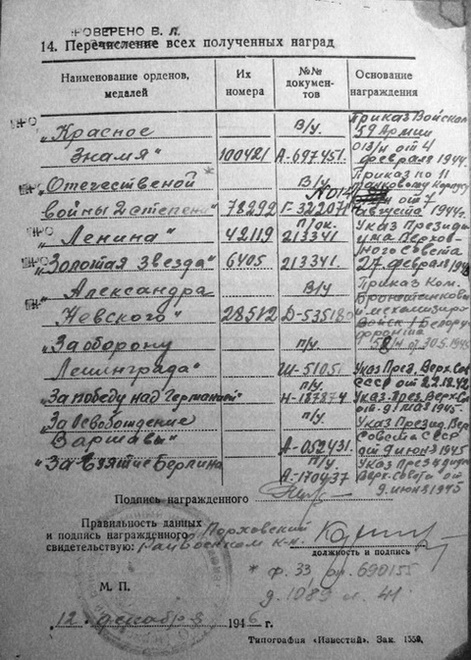 ПРОВЕРЕНО В. Л.
14. Перечисление всех полученных наград
Наименование орденов, медалей
Их номера
№№ документов
Основание награждения
„Красное
Знамя"
100421
В/у.
А-697451.
Приказ Войскам
59 Армии
013/н от 4
февраля 1944г.
„Отечественой
войны 2 степени"
78292
В/у
Г-322071
Приказ по 11
танковому корпусу
от 7
августа 1944г.
„Ленина"
42119
п/ок.
213341
„Золотая звезда"
6405
213341.
Указ Президи
ума Верхов-
ного Совета
27 февраля 194
„Александра
Невского"
28512
В/у
Д-535180
Приказ Ком.
Бронетанковы
и механизиро
Войск 1 Белору
фронта
58/н от 30.5.1945
„За оборону
Ленинграда"
п/у.
Ш-51051
Указ През. Верх. Сов
СССР от 22.12.42
„За победу над Германией"
п/у.
Н-187874
Указ През. Верх. Со
от 9 мая 1945.
„За Освобождение
Варшавы"
п/у.
А-052431.
Указ Презид. Вер
Совета СССР
от 9 июня 1945
„За Взятие Берлина
п/у.
А-170437
Указ Президиу
Верх. Совета от
9 июня 1945
Подпись награжденного
Правильность данных
и подпись награжденного
свидетельствую:
Порховский
Райвоенком
должность и подпись
* ф. 33 оп. 690155
д. 1089 л. 41.
М. П.
„12" декабря 1946 г.
Типография «Известий». Зак. 1559.